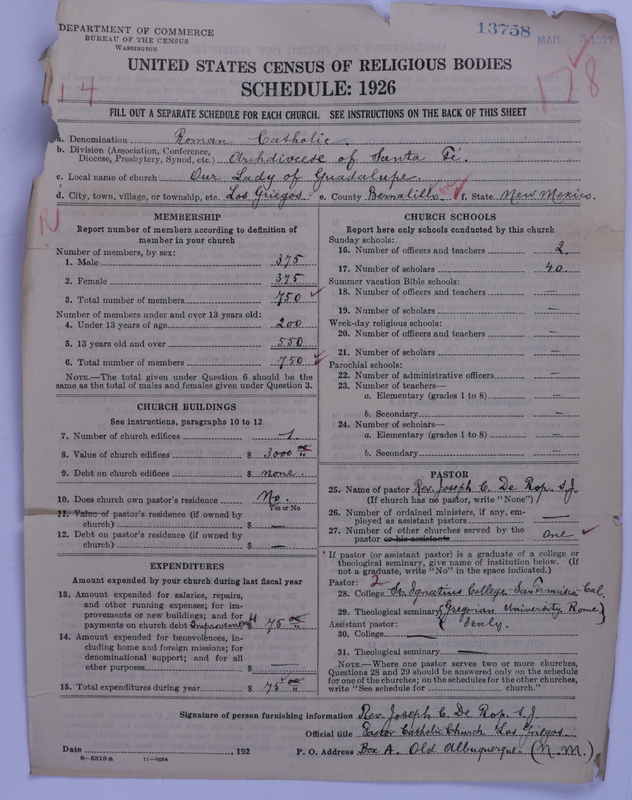 DEPARTMENT OF COMMERCE
BUREAU OF THE CENSUS
WASHINGTON
13758
MAR 5 1927
UNITED STATES CENSUS OF RELIGIOUS BODIES
SCHEDULE: 1926
14
178
FILL OUT A SEPARATE SCHEDULE FOR EACH CHURCH. SEE INSTRUCTIONS ON THE BACK OF THIS SHEET
a. Denomination Roman Catholic.
b. Division (Association, Conference,
Diocese, Presbytery, Synod, etc.) Archdiocese of Santa Fé.
c. Local name of church Our Lady of Guadalupe.
d. City, town, village, or township, etc. Los Griegos. e. County Bernalillo f. State New Mexico.
R
MEMBERSHIP
Report number of members according to definition of
member in your church
Number of members, by sex:
1. Male 375
2. Female 375
3. Total number of members 750
Number of members under and over 13 years old:
4. Under 13 years of age 200
5. 13 years old and over 550
6. Total number of members 750
NOTE.—The total given under Question 6 should be the
same as the total of males and females given under Question 3.
CHURCH BUILDINGS
See instructions, paragraphs 10 to 12
7. Number of church edifices 1
8. Value of church edifices $ 3000 00
9. Debt on church edifices $ none.
10. Does church own pastor's residence No.
Yes or No
11. Value of pastor's residence (if owned by
church) $ —
12. Debt on pastor's residence (if owned by
church) $ —
EXPENDITURES
Amount expended by your church during last fiscal year
13. Amount expended for salaries, repairs,
and other running expenses; for im-
provements or new buildings; and for
payments on church debt Improvement $ 75 00
14. Amount expended for benevolences, in-
cluding home and foreign missions; for
denominational support; and for all
other purposes $ —
15. Total expenditures during year $ 75 00
CHURCH SCHOOLS
Report here only schools conducted by this church
Sunday schools:
16. Number of officers and teachers 2.
17. Number of scholars 40.
Summer vacation Bible schools:
18. Number of officers and teachers —
19. Number of scholars —
Week-day religious schools:
20. Number of officers and teachers —
21. Number of scholars —
Parochial schools:
22. Number of administrative officers —
23. Number of teachers—
a. Elementary (grades 1 to 8) —
b. Secondary —
24. Number of scholars—
a. Elementary (grades 1 to 8) —
b. Secondary —
PASTOR
25. Name of pastor Rev. Joseph C. De Rop. S.J.
(If church has no pastor, write "None")
26. Number of ordained ministers, if any, em-
ployed as assistant pastors —
27. Number of other churches served by the
pastor or his assistants one
If pastor (or assistant pastor) is a graduate of a college or
theological seminary, give name of institution below. (If
not a graduate, write "No" in the space indicated.)
Pastor: 2
28. College St. Ignatius College San Francisco Cal.
29. Theological seminary {Gregorian University, Rome}
Assistant pastor: { Italy.
30. College —
31. Theological seminary —
NOTE.—Where one pastor serves two or more churches,
Questions 28 and 29 should be answered only on the schedule
for one of the churches; on the schedules for the other churches,
write "See schedule for church."
Signature of person furnishing information Rev. Joseph C. De Rop. S.J.
Official title Pastor Catholic Church Los Griegos.
Date , 192 P. O. Address Box A. Old Albuquerque. (N.M.)
8—5518 a 11—9064